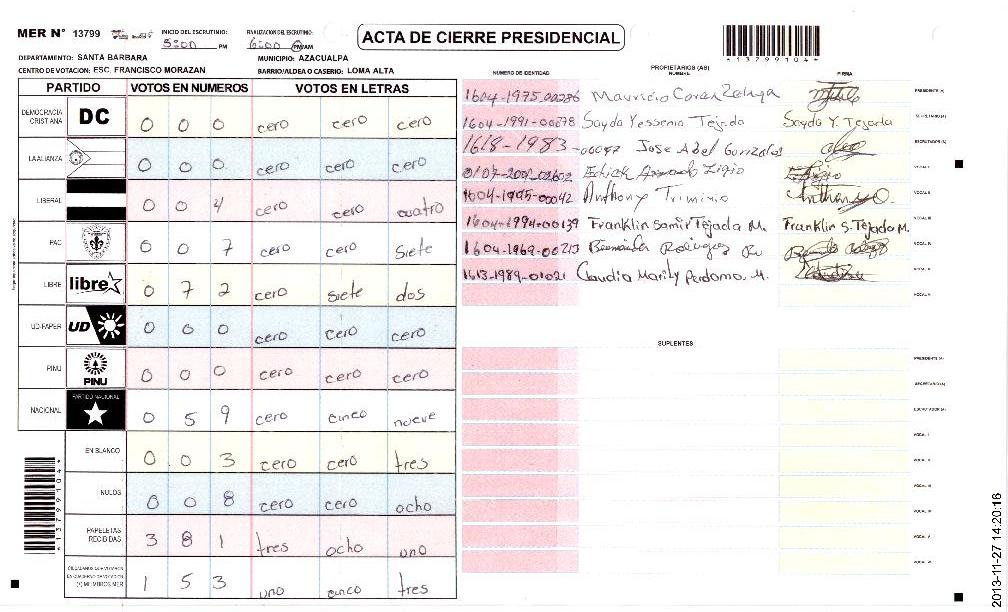 MER N° 13799
INICIO DEL ESCRUTINIO: 5:00 PM
FINALIZACION DEL ESCRUTINIO: 6:00 PM/AM
ACTA DE CIERRE PRESIDENCIAL
*13799104*
DEPARTAMENTO: SANTA BARBARA
MUNICIPIO: AZACUALPA
CENTRO DE VOTACION: ESC. FRANCISCO MORAZAN
BARRIO/ALDEA O CASERIO: LOMA ALTA
PARTIDO VOTOS EN NUMEROS VOTOS EN LETRAS
DEMOCRACIA CRISTIANA DC 0 0 0 cero cero cero
LA ALIANZA 0 0 0 cero cero cero
LIBERAL 0 0 4 cero cero cuatro
PAC 0 0 7 cero cero siete
LIBRE libre 0 7 2 cero siete dos
UD-FAPER UD 0 0 0 cero cero cero
PINU PINU 0 0 0 cero cero cero
NACIONAL PARTIDO NACIONAL 0 5 9 cero cinco nueve
EN BLANCO 0 0 3 cero cero tres
NULOS 0 0 8 cero cero ocho
PAPELETAS RECIBIDAS 3 8 1 tres ocho uno
CIUDADANOS QUE VOTARON EN CUADERNO DE VOTACION (+) MIEMBROS MER 1 5 3 uno cinco tres
*13799104*
NUMERO DE IDENTIDAD PROPIETARIOS (AS) NOMBRE FIRMA
1604-1975-00286 Mauricio PRESIDENTE (A)
1604-1991-00278 Sayda Yessenia Tejada Sayda Y. Tejada SECRETARIO (A)
1618-1983-00097 Jose Abel Gonzales ESCRUTADOR (A)
VOCAL I
1604-1995-00042 Anthony Triminio VOCAL II
1604-1994-00139 Franklin Samir Tejada M. Franklin S. Tejada M. VOCAL III
1604-1969-00213 VOCAL IV
1613-1989-01021 Claudia Marily Perdomo. M. VOCAL V
VOCAL VI
SUPLENTES
PRESIDENTE (A)
SECRETARIO (A)
ESCRUTADOR (A)
VOCAL I
VOCAL II
VOCAL III
VOCAL IV
VOCAL V
VOCAL VI
2013-11-27 14:20:16